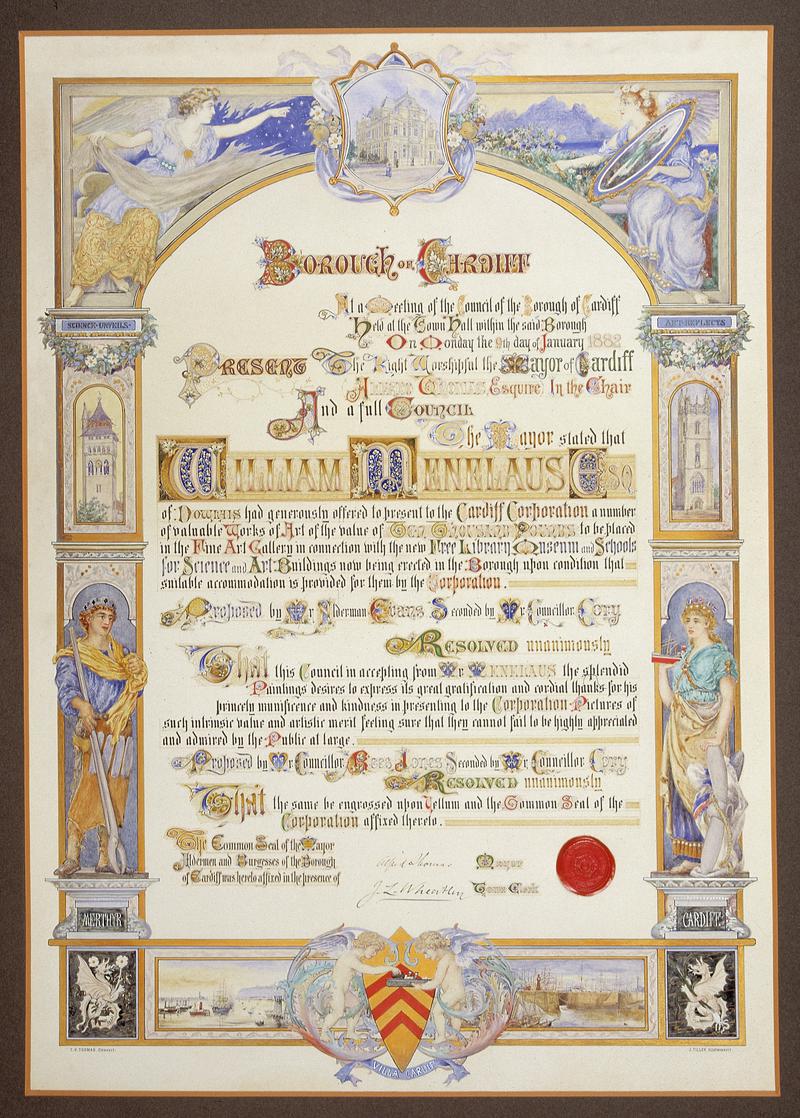 BOROUGH OF CARDIFF
At a Meeting of the Council of the Borough of Cardiff
Held at the Town Hall within the said Borough
On Monday the 9th day of January 1882
SCIENCE·UNVEILS·
ART·REFLECTS
PRESENT The Right Worshipful the Mayor of Cardiff
Alfred Thomas, Esquire, In the Chair
And a full COUNCIL
The Mayor stated that
WILLIAM MENELAUS ESQ
of DOWLAIS had generously offered to present to the Cardiff Corporation a number
of valuable Works of Art of the value of Ten Thousand Pounds to be placed
in the Fine Art Gallery in connection with the new Free Library Museum and Schools
for Science and Art Buildings now being erected in the Borough upon condition that
suitable accommodation is provided for them by the Corporation.
Proposed by Mr Alderman Evans Seconded by Mr Councillor Cory
RESOLVED unanimously
That this Council in accepting from Mr MENELAUS the splendid
Paintings desires to express its great gratification and cordial thanks for his
princely munificence and kindness in presenting to the Corporation Pictures of
such intrinsic value and artistic merit feeling sure that they cannot fail to be highly appreciated
and admired by the Public at large.
Proposed by Mr Councillor Rees Jones Seconded by Mr Councillor Cory
RESOLVED unanimously
That the same be engrossed upon Vellum and the Common Seal of the
Corporation affixed thereto.
The Common Seal of the Mayor
Aldermen and Burgesses of the Borough
of Cardiff was hereto affixed in the presence of
Alfred Thomas Mayor
J. L. Wheatley Town Clerk
MERTHYR
CARDIFF
VILLA CARDIF
T. H. THOMAS,
J. TILLER,